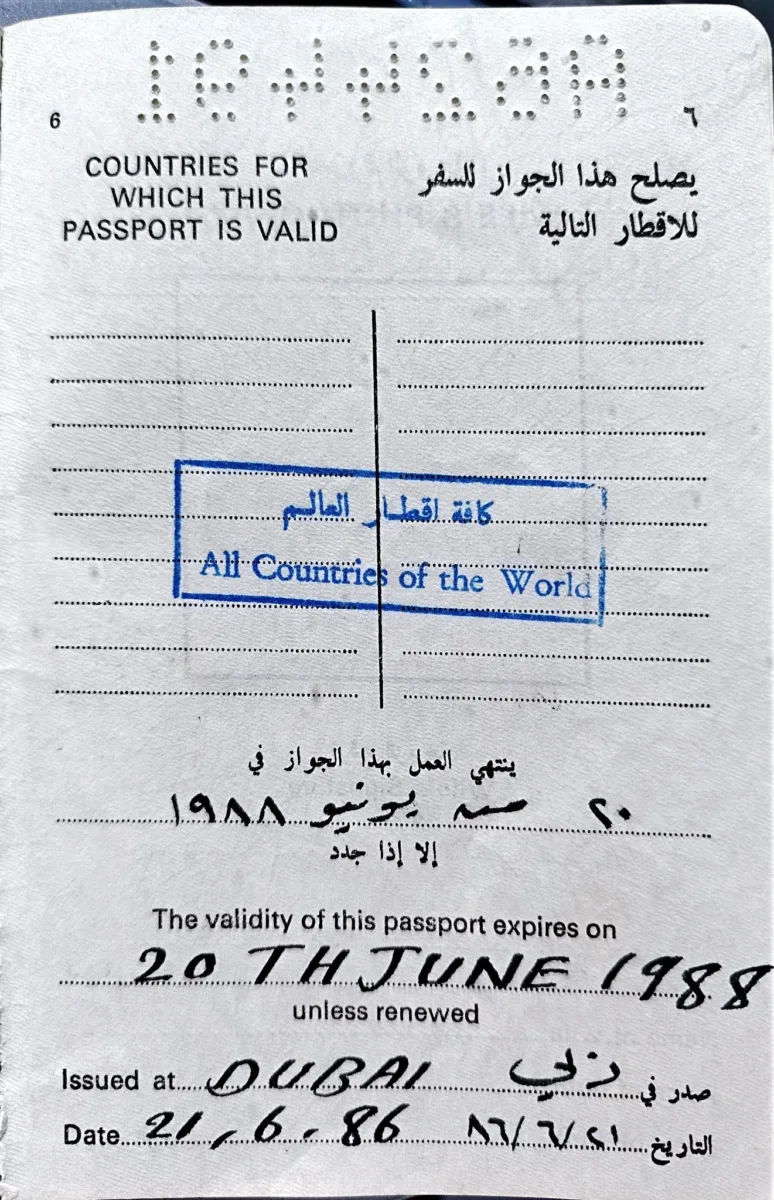 6
٦
COUNTRIES FOR
WHICH THIS
PASSPORT IS VALID
يصلح هذا الجواز للسفر
للاقطار التالية
كافة اقطار العالم
All Countries of the World
ينتهي العمل بهذا الجواز في
٢٠ من يونيو ١٩٨٨
إلا إذا جدد
The validity of this passport expires on
20 TH JUNE 1988
unless renewed
Issued at DUBAI
صدر في دبي
Date 21.6.86
التاريخ ٨٦/٦/٢١